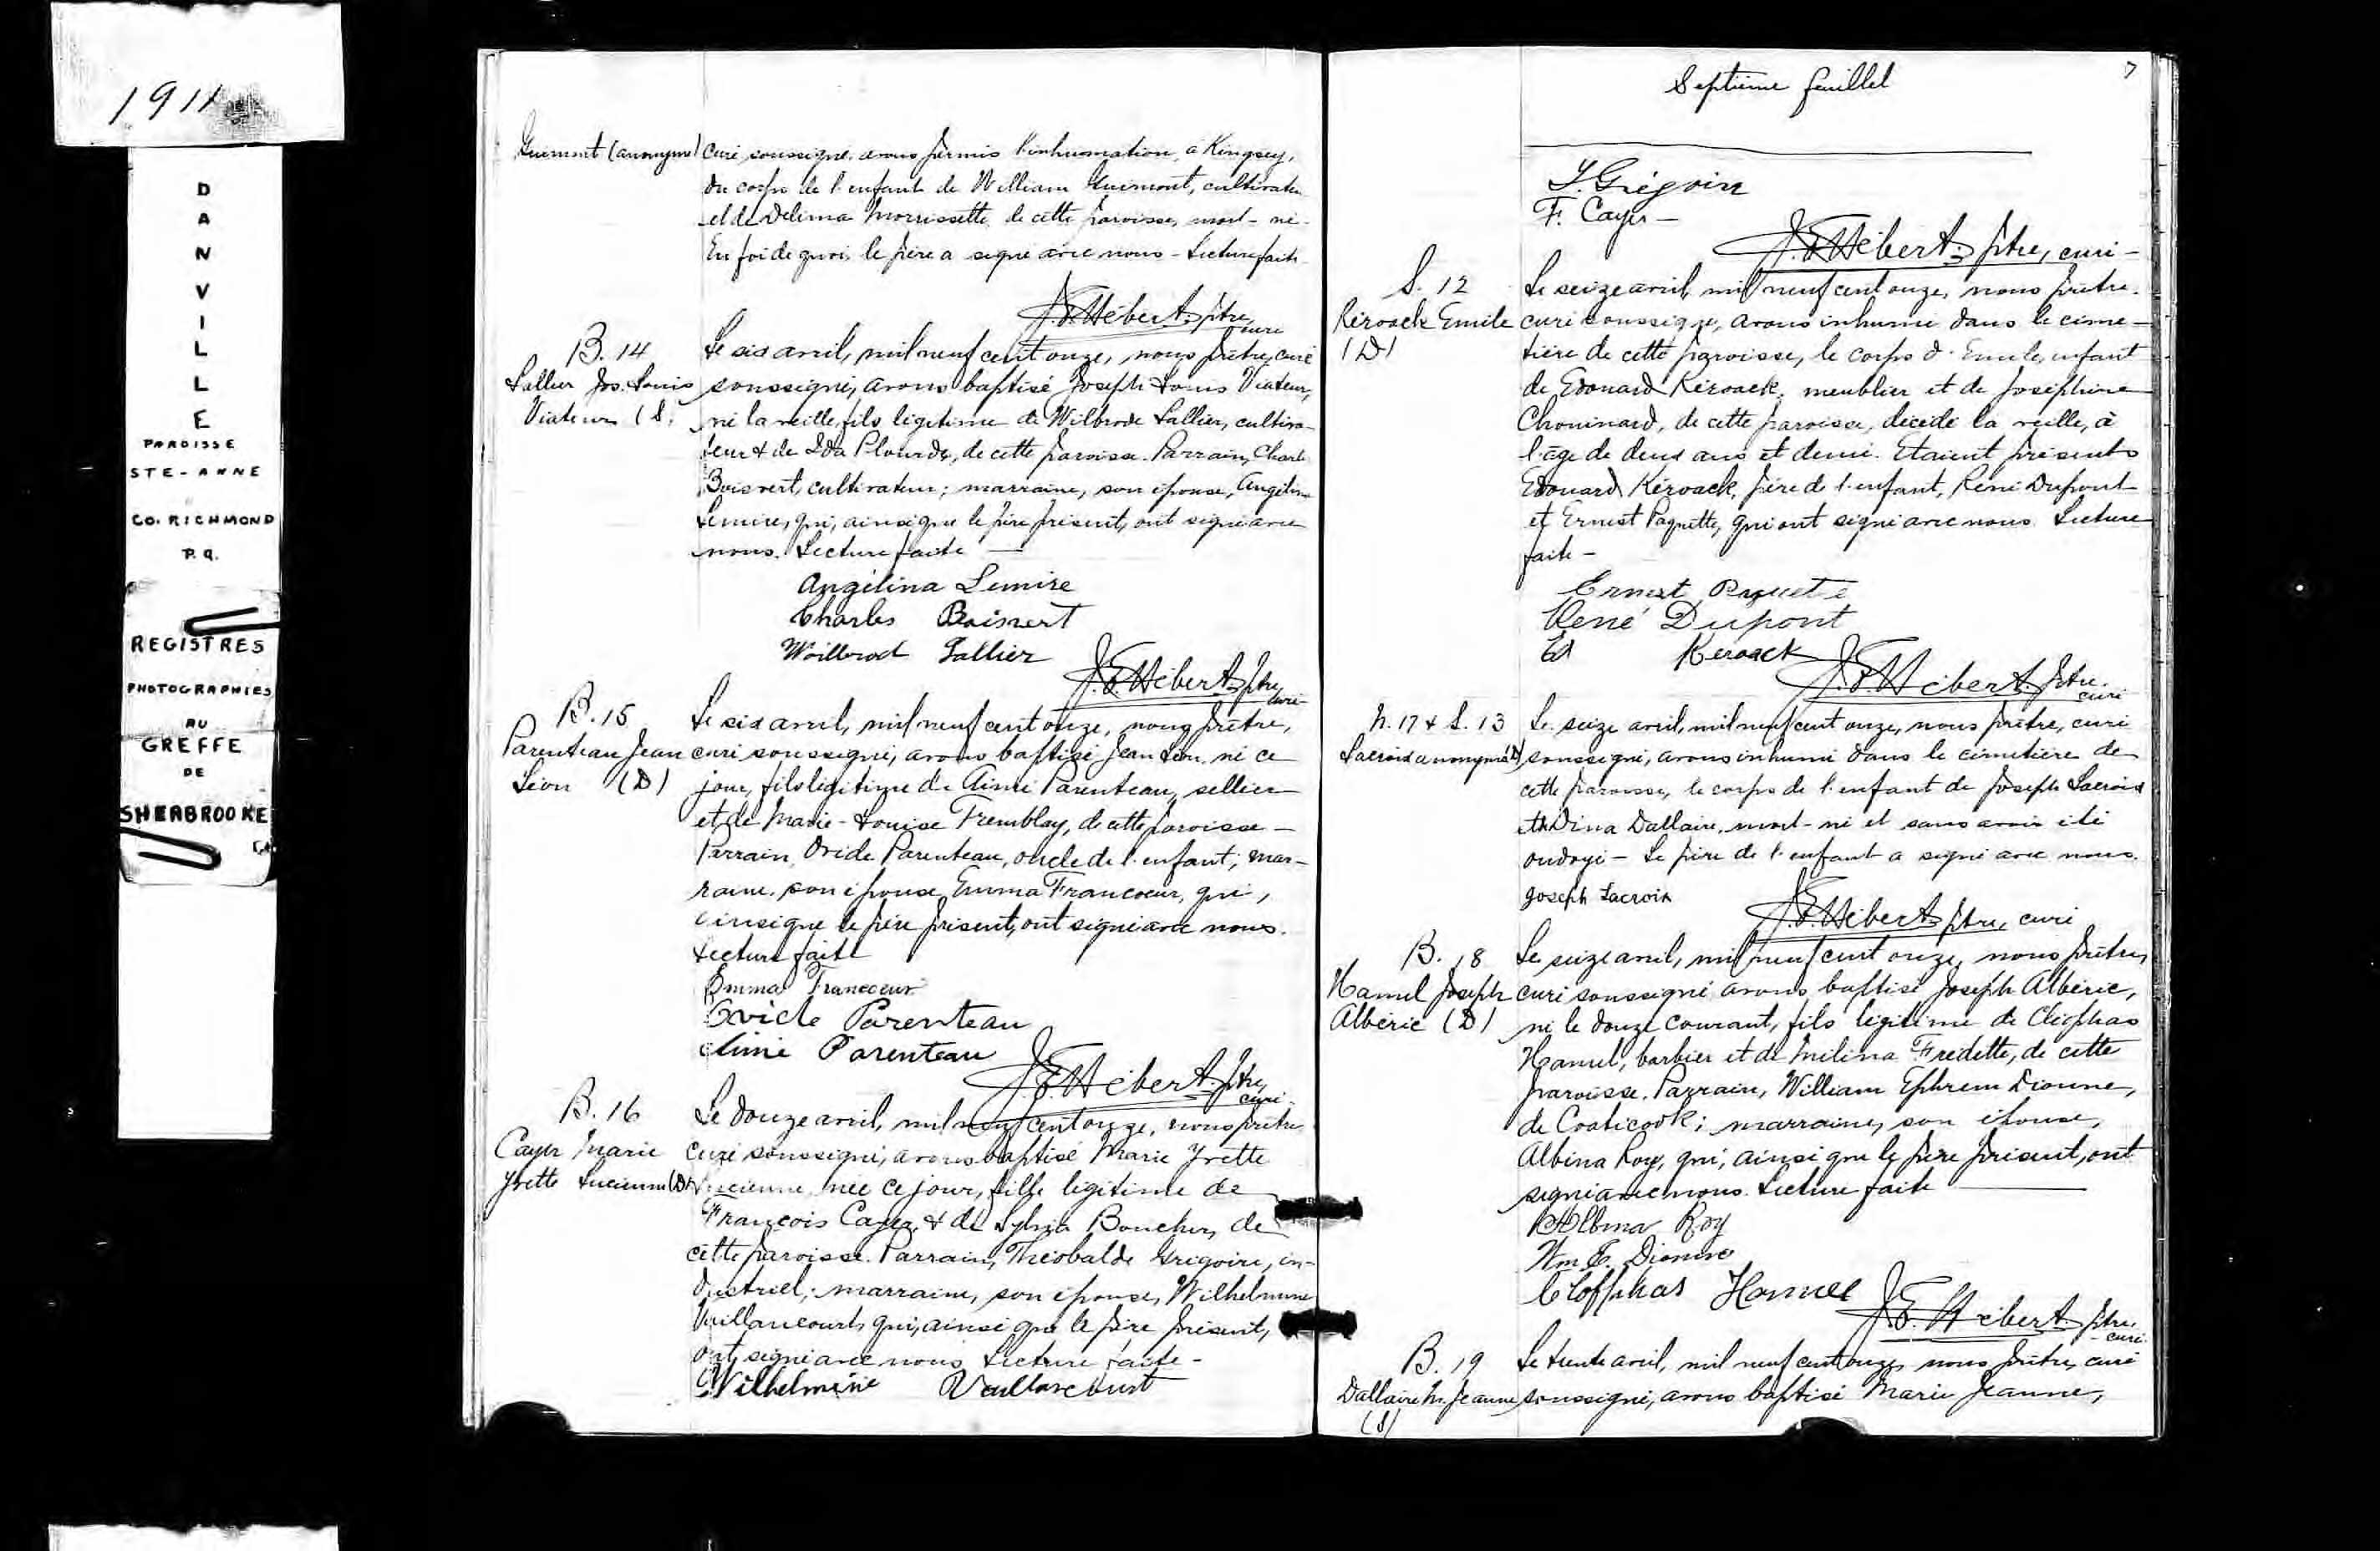 1911
DANVILLE
PAROISSE
STE-ANNE
CO. RICHMOND
P.Q.
REGISTRES
PHOTOGRAPHIES
AU
GREFFE
DE
SHERBROOKE
Guimont (anonyme) curé soussigné avons permis l'inhumation, à Kingsey,
du corps de l'enfant de William Guimont, cultivateur
et de Délima Morrissette de cette paroisse, mort-né-
En foi de quoi, le père a signé avec nous - Lecture faite
J.E. Hébert, ptre,
curé
B. 14 Le six avril, mil neuf cent onze, nous prêtre, curé
Lallier Jos. Louis soussigné, avons baptisé Joseph Louis Viateur,
Viateur (S. né la veille, fils légitime de Wilbrode Lallier, cultiva-
teur & de Ida Plourde, de cette paroisse. Parrain, Charles
Boisvert, cultivateur; marraine, son épouse, Angélina
Lemire, qui, ainsi que le père présent, ont signé avec
nous. Lecture faite —
Angélina Lemire
Charles Boisvert
Woilbrod Lallier
J.E. Hébert, ptre,
curé
B. 15 Le six avril, mil neuf cent onze, nous prêtre,
Parenteau Jean curé soussigné, avons baptisé Jean Léon, né ce
Léon (D) jour, fils légitime de Aimé Parenteau, sellier
et de Marie-Louise Tremblay, de cette paroisse —
Parrain, Ovide Parenteau, oncle de l'enfant; mar-
raine, son épouse, Emma Francoeur, qui,
ainsi que le père présent, ont signé avec nous.
Lecture faite
Emma Francoeur
Ovide Parenteau
Aimé Parenteau
J.E. Hébert, ptre,
curé
B. 16 Le douze avril, mil neuf cent onze, nous prêtre
Cayer Marie curé soussigné, avons baptisé Marie Yvette
Yvette Lucienne (D) Lucienne, née ce jour, fille légitime de
François Cayer & de Sylvia Boucher, de
cette paroisse. Parrain, Théobalde Grégoire, in-
dustriel; marraine, son épouse, Wilhelmine
Vaillancourt, qui, ainsi que le père présent,
ont signé avec nous. Lecture faite -
Wilhelmine Vaillancourt
Septième feuillet 7
T. Grégoire
F. Cayer —
J.E. Hébert, ptre, curé -
S. 12 Le seize avril, mil neuf cent onze, nous prêtre.
Kéroack Emile curé soussigné, avons inhumé dans le cime-
(D) tière de cette paroisse, le corps d'Emile, enfant
de Edouard Kéroack, meublier et de Joséphine
Chouinard, de cette paroisse, décédé la veille, à
l'âge de deux ans et demi. Etaient présents
Edouard Kéroack, père de l'enfant, René Dupont
et Ernest Paquette, qui ont signé avec nous. Lecture
faite -
Ernest Paquette
René Dupont
Ed Keroack
J.E. Hébert, ptre.
curé
N. 17 & S. 13 Le seize avril, mil neuf cent onze, nous prêtre, curé
Lacroix anonyme (D) soussigné, avons inhumé dans le cimetière de
cette paroisse, le corps de l'enfant de Joseph Lacroix
et Dina Dallaire, mort-né et sans avoir été
ondoyé - Le père de l'enfant a signé avec nous.
Joseph Lacroix
J.E. Hébert, ptre, curé
B. 18 Le seize avril, mil neuf cent onze, nous prêtre,
Hamel Joseph curé soussigné avons baptisé Joseph Albéric,
Albéric (D) né le douze courant, fils légitime de Cléophas
Hamel, barbier et de Mélina Fredette, de cette
paroisse. Parrain, William Ephrem Dionne,
de Coaticook; marraine, son épouse,
Albina Roy, qui, ainsi que le père présent, ont
signé avec nous. Lecture faite —
Albina Roy
Wm E. Dionne
Cloffhas Hamel
J.E. Hébert, ptre.
- curé -
B. 19 Le trente avril, mil neuf cent onze, nous prêtre, curé
Dallaire M. Jeanne soussigné, avons baptisé Marie Jeanne,
(S)